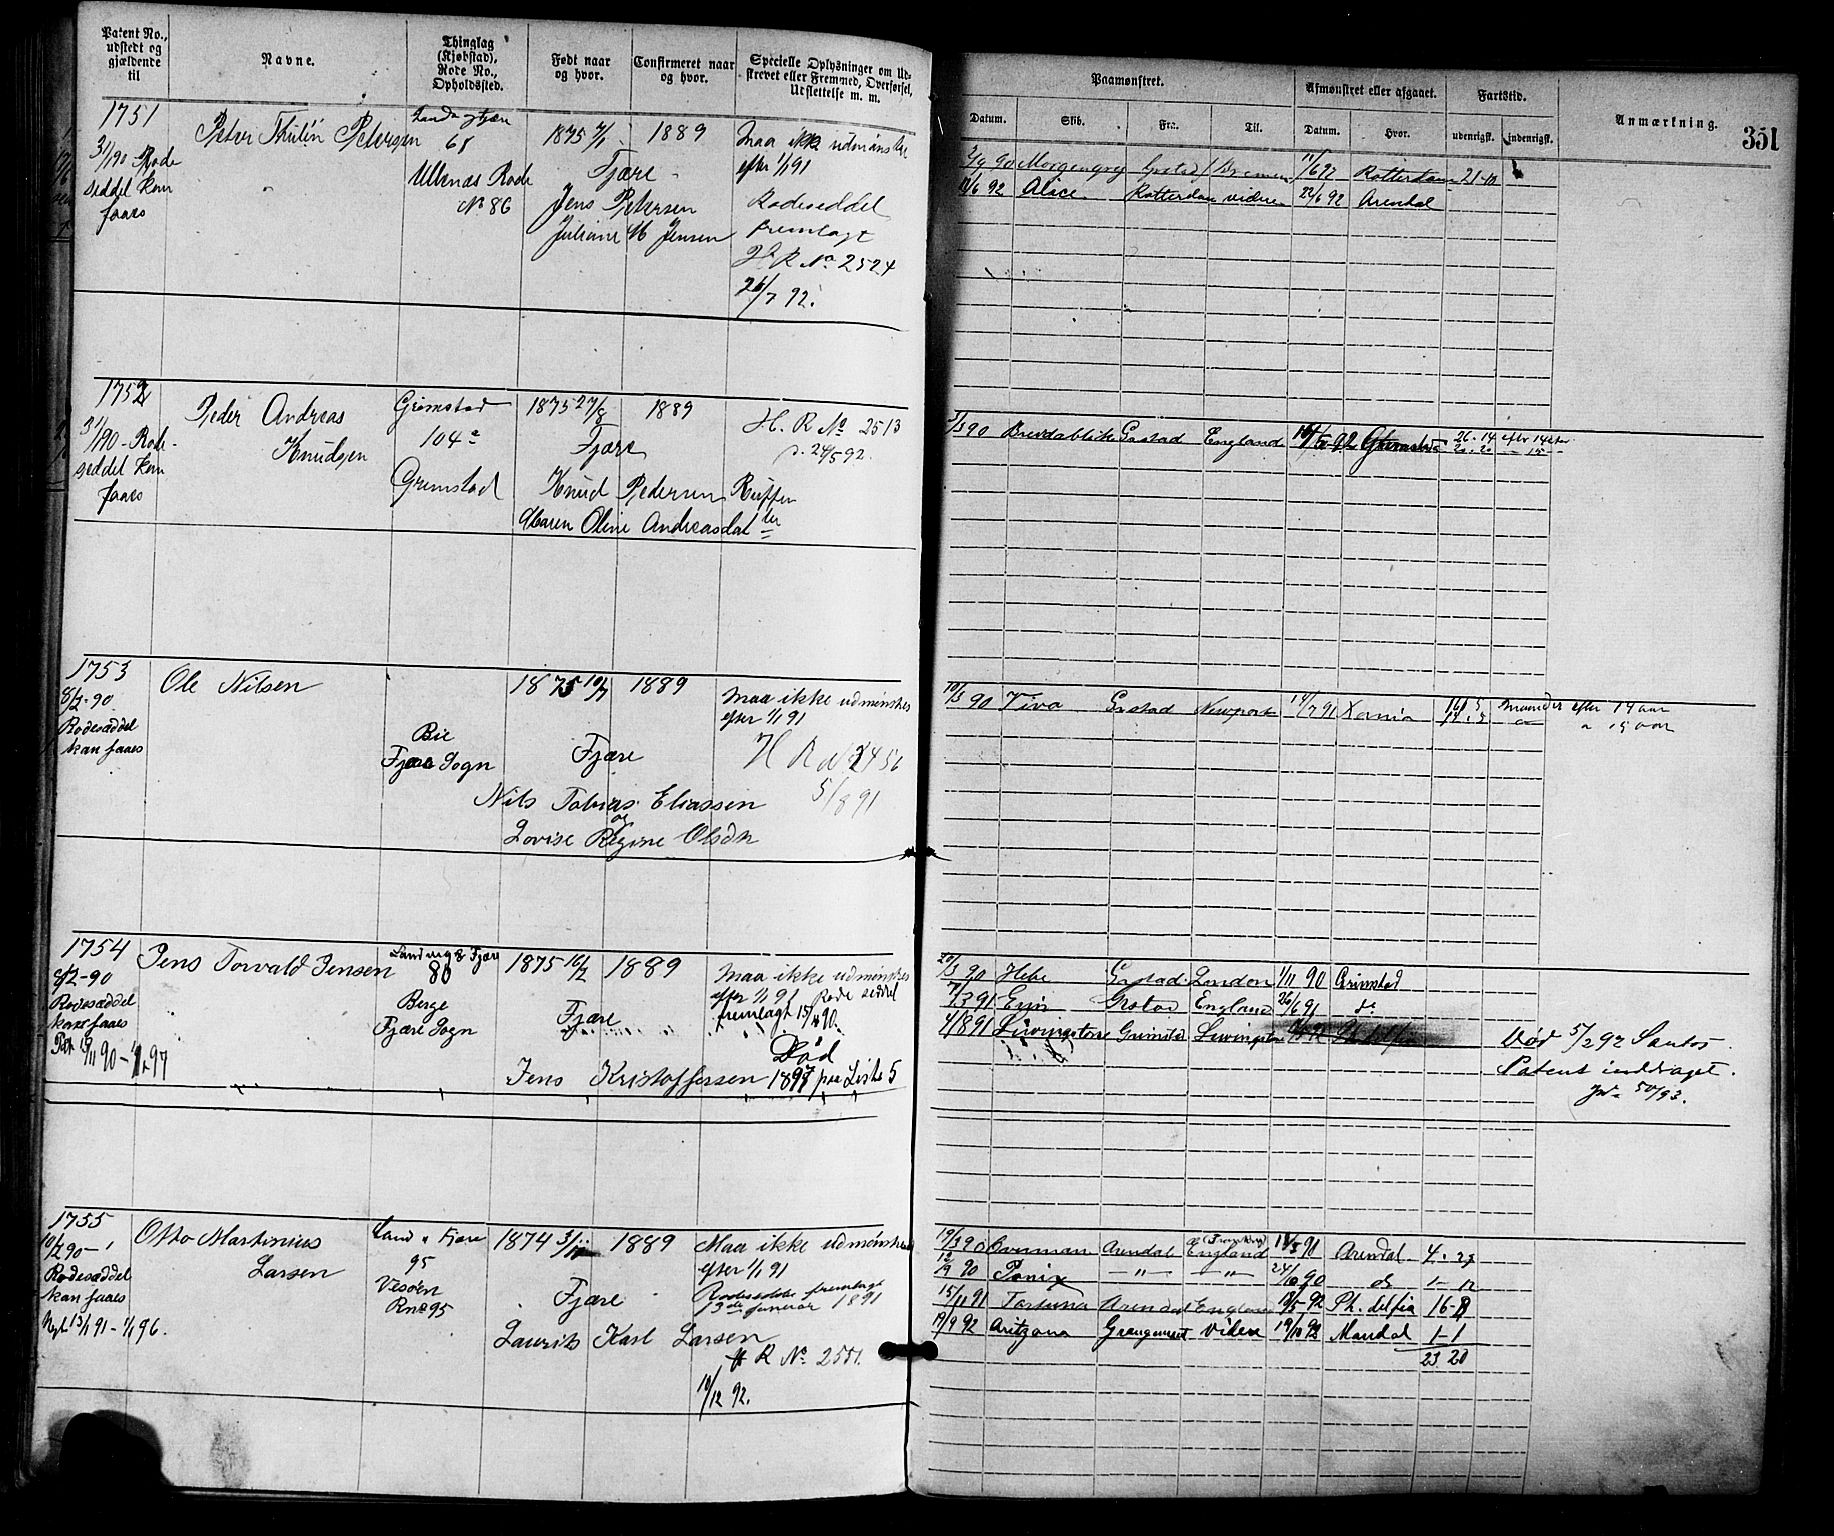 Patent No., udstedt og gjældende til
Navne.
Thinglag (Kjøbstad), Rode No., Opholdssted.
Født naar og hvor.
Confirmeret naar og hvor.
Specielle Oplysninger om Udskrevet eller Fremmed, Overførsel, Udslettelse m. m.
1751
3/1 90 Rode
seddel kan
faaes
Peter Thulin Petersen
68
Ullenæs Rode
No 86
1875
Fjære
1889
Jens Petersen
Juliane M Jensen
Maa ikke udmønstres
efter 1/1 91
Rodeseddel
fremlagt
H R No 2524
26/7 92.
1752
31/1 90 - Rode-
seddel kan
faaes
Peder Andreas
Knudsen
Grimstad
104 a
Grimstad
1875 27/8
Fjære
1889
H. R No 2513
24/5 92.
Knud Pedersen
Maren Oline Andreasdatter
1753
8/2-90
Rodesæddel
kan faaes
Ole Nilsen
Bie
Fjære Sogn
1875 10/7
Fjære
1889
Maa ikke udmønstres
efter 1/1 91
H R No 2456
5/8 91
Nils Tobias Eliassen
og
Lovise Regine Olsdn
1754
8/2-90
Rodesæddel
kan faaes
Jens Torvald Jensen
Landvig & Fjære
80
Berge
Fjære Sogn
1875 16/2
Fjære
1889
Maa ikke udmønstres
efter 1/1 91 Rode seddel
fremlagt 15/11 90.
Død
Jens Kristoffersen 1897 paa Liste 5
1755
10/2 90 -
Rodesæddel
kan faaes
Otto Martinius
Larsen
Land & Fjære
95
Vesøen
Rno 95
1874
Fjære
1889
Maa ikke udmønstres
efter 1/1 91
Rodeseddel fremlagt
13de Januar 1891
Laurits Karl Larsen
H R No 2551.
10/12 92.
351
Paamønstret.
Afmønstret eller afgaaet.
Fartstid.
Anmærkning.
Datum. Skib. Fra. Til. Datum. Hvor. udenrigsk. indenrigsk.
2/9 90 Morgengry Grstad Bremen 11/6 92 Rotterdam 21-10
11/6 92 Alice Rotterdam videre 22/6 92 Arendal
5/3 90 Breidablik Grstad England Grimstad 26.14 efter 14 aar
10/3 90 Viva Grstad Newport 14/7 91 Xania 16 5 Maaneder efter 14 aar
15 aar
20/3 90 Hebe Grstad London 1/11 90 Grimstad
7/3 91 Erin Grstad England 26/6 91 do
4/8 91 Liwingstone Grimstad
Død 5/2 92 Santos
Patent inddraget.
50/93.
19/3 90 Arendal England Arendal 4.23
12/9 90 Fönix -"- -"- 24/10 90 do 1-12
15/11 91 Fortuna Arendal England 18/5-92 Ph.delfia 16-8
19/9 92 Aritzona videre 19/10 92 Mandal 1-1
23 20